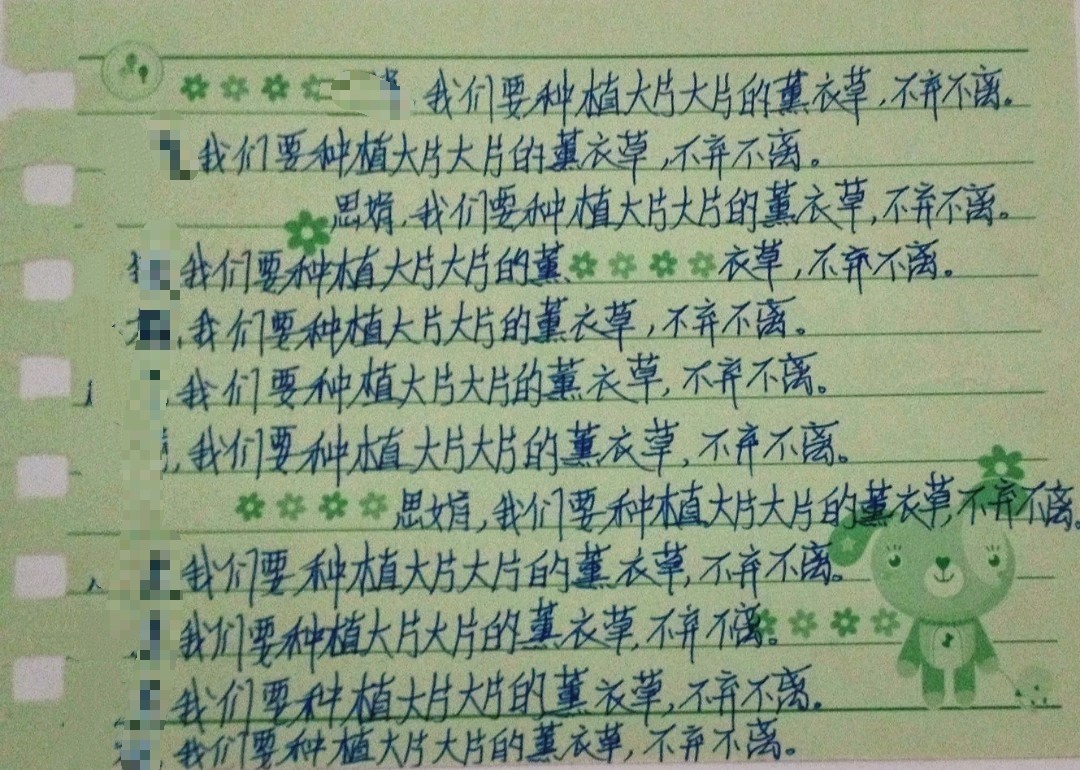 ，我们要种植大片大片的薰衣草，不弃不离。
，我们要种植大片大片的薰衣草，不弃不离。
思娟，我们要种植大片大片的薰衣草，不弃不离。
，我们要种植大片大片的薰衣草，不弃不离。
，我们要种植大片大片的薰衣草，不弃不离。
，我们要种植大片大片的薰衣草，不弃不离。
，我们要种植大片大片的薰衣草，不弃不离。
思娟，我们要种植大片大片的薰衣草，不弃不离。
，我们要种植大片大片的薰衣草，不弃不离。
，我们要种植大片大片的薰衣草，不弃不离。
，我们要种植大片大片的薰衣草，不弃不离。
，我们要种植大片大片的薰衣草，不弃不离。